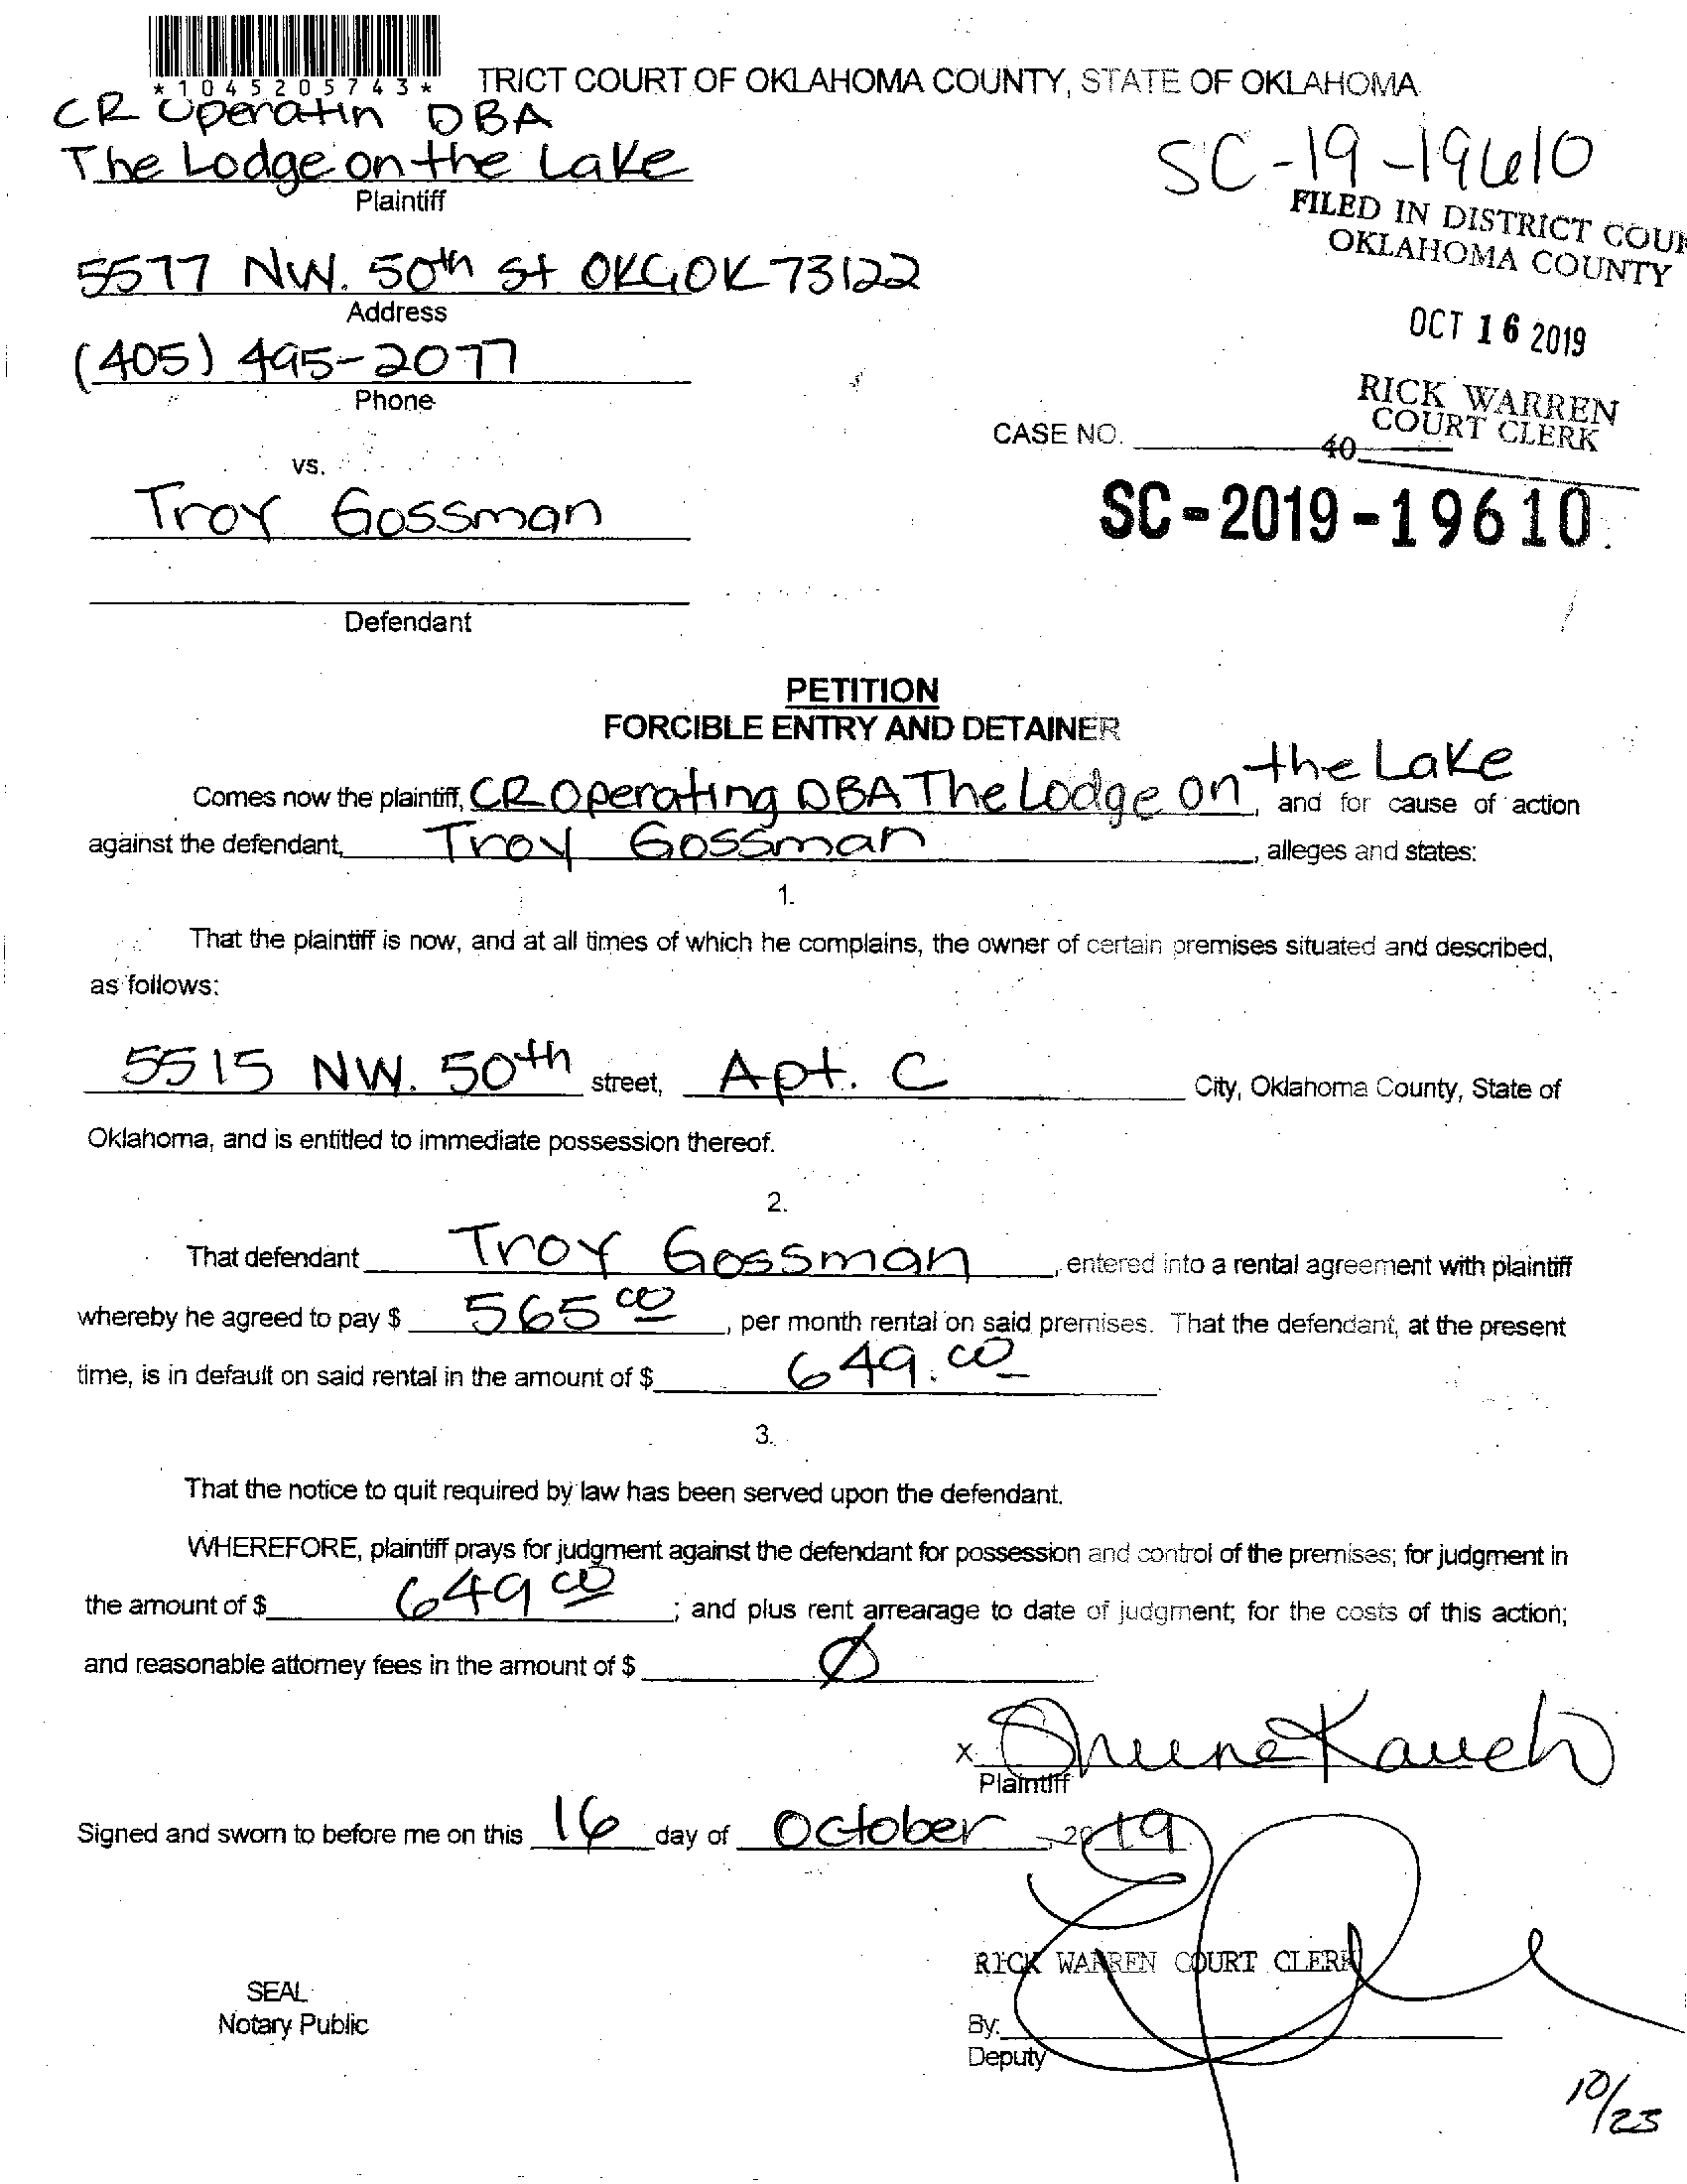 *1045205743*
TRICT COURT OF OKLAHOMA COUNTY, STATE OF OKLAHOMA
CR Operatin DBA
The Lodge on the Lake
Plaintiff
SC-19-19610
FILED IN DISTRICT COUR
OKLAHOMA COUNTY
5577 NW. 50th St OKC OK 73122
Address
OCT 16 2019
(405) 495-2077
Phone
RICK WARREN
COURT CLERK
CASE NO.
40
vs.
SC-2019-19610
Troy Gossman
Defendant
PETITION
FORCIBLE ENTRY AND DETAINER
Comes now the plaintiff, CR Operating DBA The Lodge on the Lake, and for cause of action
against the defendant, Troy Gossman, alleges and states:
1.
That the plaintiff is now, and at all times of which he complains, the owner of certain premises situated and described,
as follows:
5515 NW. 50th street, Apt. C City, Oklahoma County, State of
Oklahoma, and is entitled to immediate possession thereof.
2.
That defendant Troy Gossman, entered into a rental agreement with plaintiff
whereby he agreed to pay $ 565 00, per month rental on said premises. That the defendant, at the present
time, is in default on said rental in the amount of $ 649.00
3.
That the notice to quit required by law has been served upon the defendant.
WHEREFORE, plaintiff prays for judgment against the defendant for possession and control of the premises; for judgment in
the amount of $ 649 00; and plus rent arrearage to date of judgment; for the costs of this action;
and reasonable attorney fees in the amount of $ Ø
x
Plaintiff
Signed and sworn to before me on this 16 day of October, 2019
RICK WARREN COURT CLERK
SEAL
Notary Public
By:
Deputy
10/23